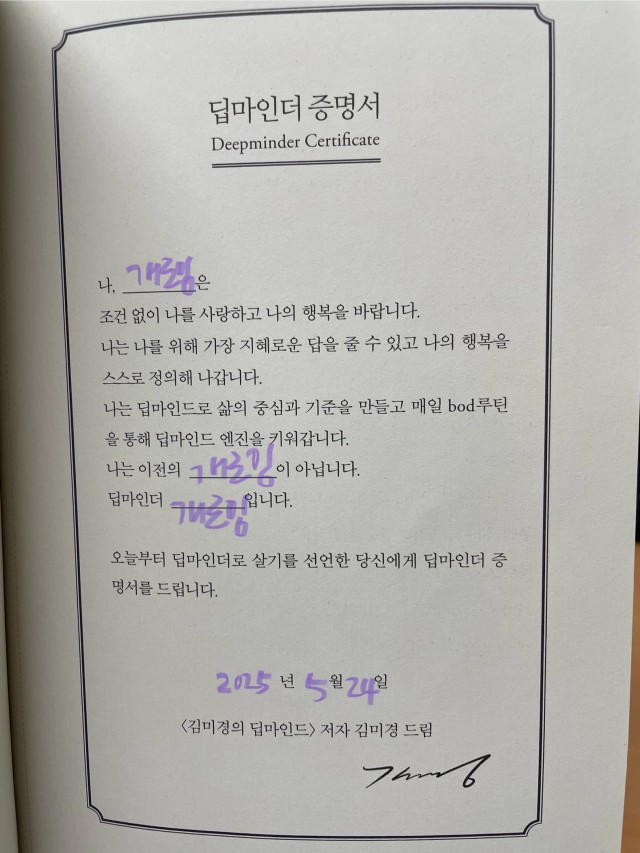 딥마인더 증명서
Deepminder Certificate
나, 은
조건 없이 나를 사랑하고 나의 행복을 바랍니다.
나는 나를 위해 가장 지혜로운 답을 줄 수 있고 나의 행복을
스스로 정의해 나갑니다.
나는 딥마인드로 삶의 중심과 기준을 만들고 매일 bod루틴
을 통해 딥마인드 엔진을 키워갑니다.
나는 이전의 이 아닙니다.
딥마인더 입니다.
오늘부터 딥마인더로 살기를 선언한 당신에게 딥마인더 증
명서를 드립니다.
2025 년 5월 24일
〈김미경의 딥마인드〉 저자 김미경 드림